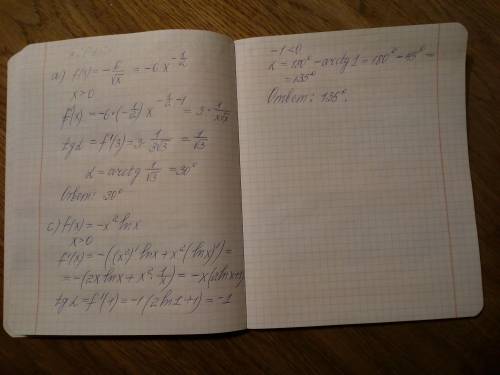 a) f(x) = -6/√x = -6 x^(-1/2)
x>0
f'(x) = -6·(-1/2) x^(-1/2 -1) = 3·1/(x√x)
tg α = f'(3) = 3·1/(3√3) = 1/√3
α = arctg 1/√3 = 30°
Ответ: 30°
c) f(x) = -x² ln x
x>0
f'(x) = -((x²)' ln x + x² (ln x)') =
= -(2x ln x + x²·1/x) = -x(2 ln x+1)
tg α = f'(1) = -1(2 ln 1 + 1) = -1
-1<0
α = 180° - arctg 1 = 180° - 45° =
= 135°
Ответ: 135°.